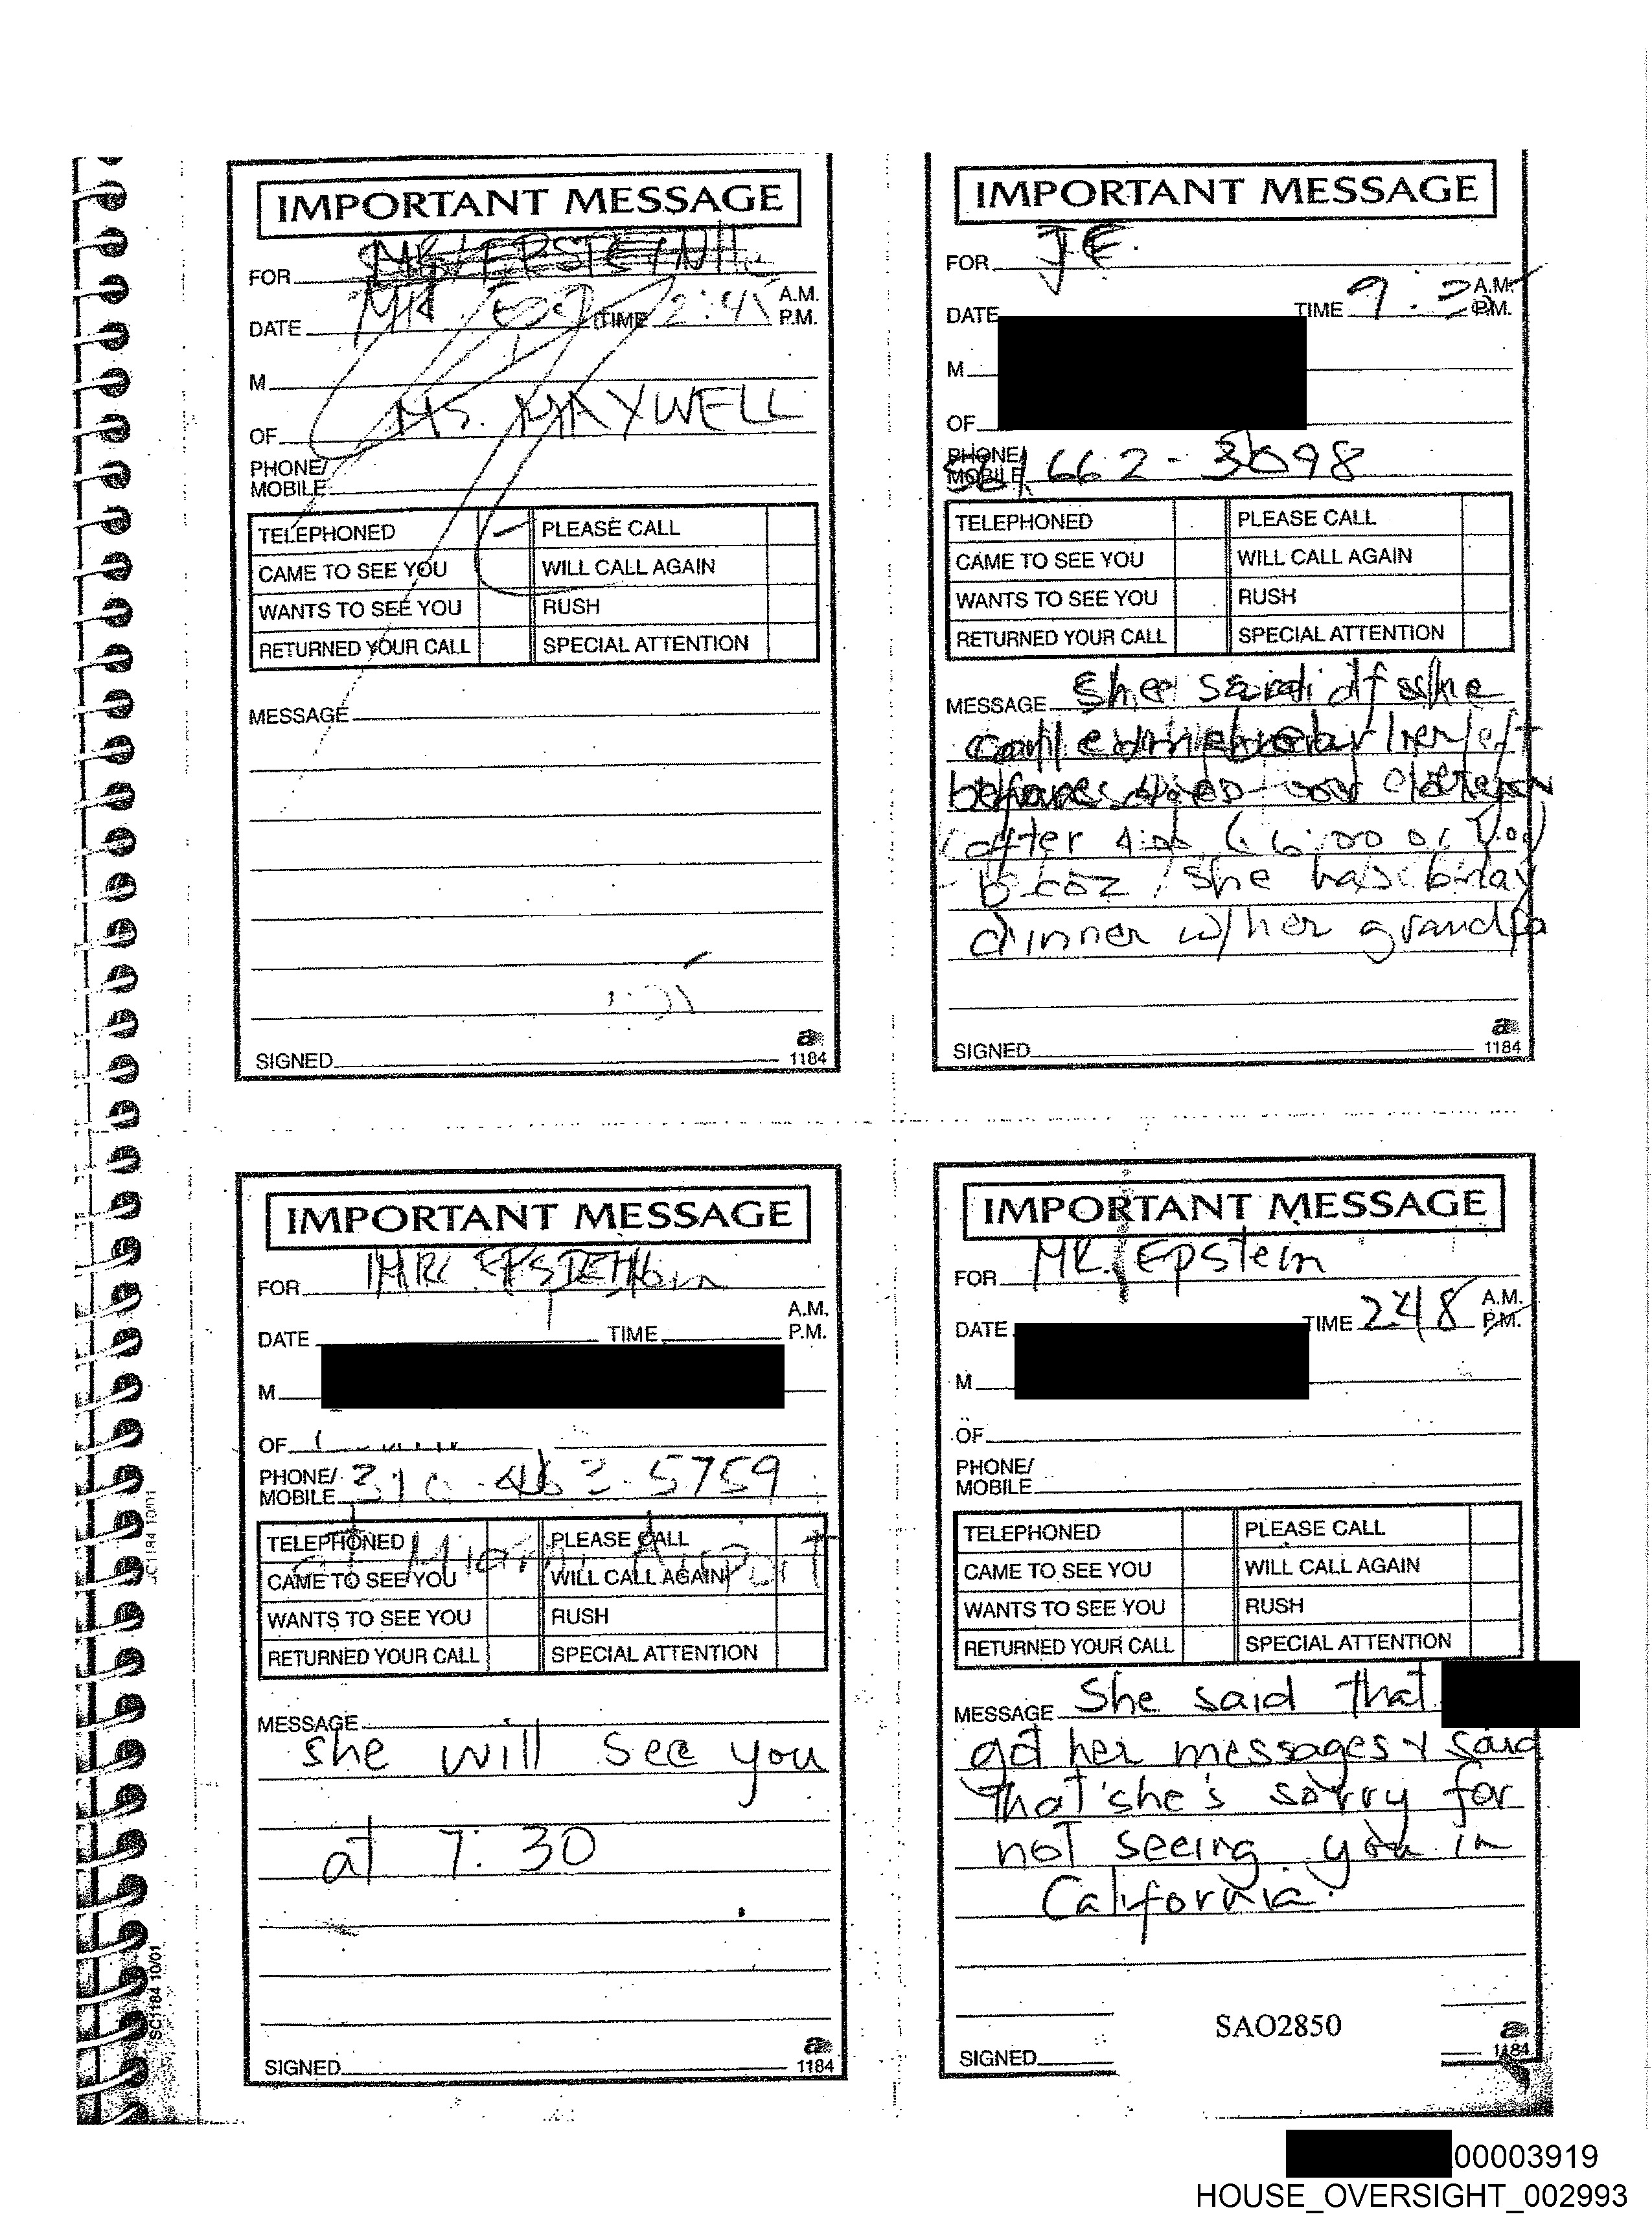 IMPORTANT MESSAGE
FOR
DATE TIME 2:45 A.M. P.M.
M
OF MS. MAXWELL
PHONE/
MOBILE
TELEPHONED PLEASE CALL
CAME TO SEE YOU WILL CALL AGAIN
WANTS TO SEE YOU RUSH
RETURNED YOUR CALL SPECIAL ATTENTION
MESSAGE
SIGNED
a
1184
IMPORTANT MESSAGE
FOR J.E.
DATE TIME A.M. P.M.
M
OF
PHONE/
MOBILE 662-3098
TELEPHONED PLEASE CALL
CAME TO SEE YOU WILL CALL AGAIN
WANTS TO SEE YOU RUSH
RETURNED YOUR CALL SPECIAL ATTENTION
MESSAGE She
after 4:00 (6:00 or
bcoz she has
dinner w/her grandpa
SIGNED
a
1184
IMPORTANT MESSAGE
FOR MR.
DATE TIME A.M. P.M.
M
OF
PHONE/
MOBILE 310-463-5759
TELEPHONED PLEASE CALL
at Miami Airport
CAME TO SEE YOU WILL CALL AGAIN
WANTS TO SEE YOU RUSH
RETURNED YOUR CALL SPECIAL ATTENTION
MESSAGE
she will see you
at 7:30
SIGNED
a
1184
IMPORTANT MESSAGE
FOR MR. Epstein
DATE TIME 2:48 A.M. P.M.
M
OF
PHONE/
MOBILE
TELEPHONED PLEASE CALL
CAME TO SEE YOU WILL CALL AGAIN
WANTS TO SEE YOU RUSH
RETURNED YOUR CALL SPECIAL ATTENTION
MESSAGE She said that
got her messages & said
that she's sorry for
not seeing you in
California.
SAO2850
SIGNED
a
1184
SC1184 10/01
SC1184 10/01
00003919
HOUSE_OVERSIGHT_002993